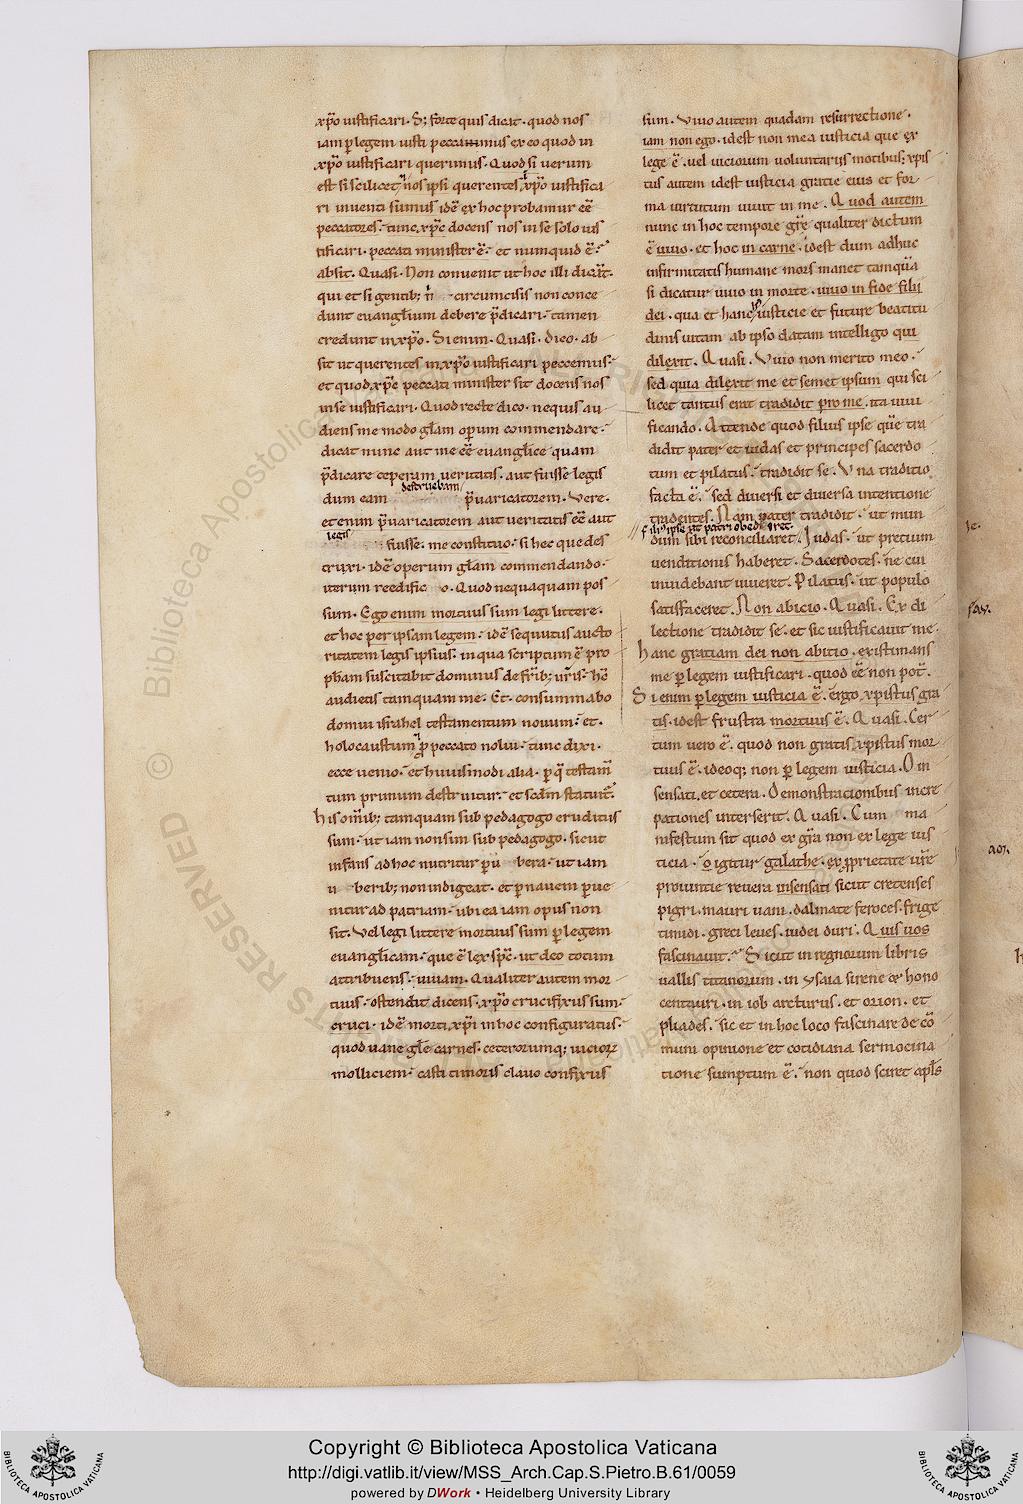 xp̄o iustificari. S; forte quis dicat. quod nos
iam p̱ legem iusti peccauimus ex eo quod in
xp̄o iustificari querimus. Quod si uerum
est si scilicet nos ipsi querentes xp̄o iustifica
ri inuenti sumus idē ex hoc probamur eē
peccatores. tunc xp̄c docens nos in se solo ius
tificari. peccati minister ē. et numquid ē.
absit. Quasi. Non conuenit ut hoc illi dicāt.
qui et si gentib; circumcisis non conce
dunt euanglium debere p̄dicari. tamen
credunt in xp̄o. Si enim. Quasi. dico. ab
sit ut querentes in xp̄o iustificari peccemus.
et quod xp̄c peccati minister sit docens nos
in se iustificari. Quod recte dico. nequis au
diens me modo gl̄am operum commendare.
dicat nunc aut me eē euanglicę quam
p̄dicare ceperam ueritatis. aut fuisse legis
destruebam
dum eam p̄uaricatorem. Vere.
et enim p̄uaricatorem aut ueritatis eē aut
legis
fuisse. me constituo. si hec que des
truxi. idē operum gl̄am commendando.
iterum reedifico. Quod nequaquam pos
sum. Ego enim mortuus sum legi littere.
et hoc per ipsam legem. idē sequutus aucto
ritatem legis ipsius. in qua scriptum ē pro
ph̄am suscitabit dominus de fr̄ib; ur̄is. hc̄
audietis tamquam me. Et. consummabo
domui israhel testamentum nouum. et.
holocaustum p̄ peccato nolui. tunc dixi.
ecce uenio. et huiusmodi alia. p̱ q̄ testam̄
tum primum destruitur. et scdm statuit̄.
his om̄ib; tamquam sub pedagogo eruditus
sum. ut iam non sim sub pedagogo. sicut
infans ad hoc nutritur p̱ u bera. ut iam
u berib; non indigeat. et p̱ nauem p̱ue
nitur ad patriam. ubi ea iam opus non
sit. Vel legi littere mortuus sum p̱ legem
euanglicam. que ē lex sp̄c. ut deo totum
attribuens. uiuam. Qualiter autem mor
tuus. ostendit dicens. xp̄o crucifixus sum.
cruci. idē morti xp̄i in hoc configuratus.
quod uane gl̄e carnes. ceterorumq; uicior̄
molliciem. casti timoris clauo confixus
sum. Viuo autem quadam resurrectione.
iam non ego. idest non mea iusticia que ex
lege ē. uel uiciorum uoluntariis motibus; xpis
tus autem idest iusticia gratie eius et for
ma uirtutum uiuit in me. Quod autem
nunc in hoc tempore gr̄e qualiter dictum
ē uiuo. et hoc in carne. idest dum adhuc
infirmitatis humane mors manet tamquā
si dicatur uiuo in morte. uiuo in fide filij
dei. qua et hanc iusticie et future beatitu
dinis uitam ab ipso datam intelligo qui
dilexit. Quasi. Viuo non merito meo.
sed quia dilexit me et semet ipsum qui sci
licet tantus erat tradidit pro me. ita uiui
ficando. Attende quod filius ipse que tra
didit pater et iudas et principes sacerdo
tum et pilatus. tradidit se. Vna traditio
facta ē. sed diuersi et diuersa intentione
tradentes. Nam pater tradidit. ut mun
fili ipse ut patri obediret.
dum sibi reconciliaret. Iudas. ut pretium
uenditionis haberet. Sacerdotes. ne cui
inuidebant uiueret. Pilatus. ut populo
satisfaceret. Non abicio. Quasi. Ex di
lectione tradidit se. et sic iustificauit me.
hanc gratiam dei non abicio. existimans
me p̱ legem iustificari. quod eē non pot̄.
Si enim p̱ legem iusticia ē. ergo xpistus gra
tis. idest frustra mortuus ē. Quasi. Cer
tum uero ē. quod non gratis xpistus mor
tuus ē. ideoq; non p̱ legem iusticia. O in
sensati. et cetera. Demonstracionibus incre
pationes interserit. Quasi. Cum ma
nifestum sit quod ex gr̄a non ex lege ius
ticia. o igitur galathe. ex p̱prietate ur̄e
prouintie reuera insensati sicut cretenses
pigri. mauri uani. dalmate feroces. frige
timidi. greci leues. iudei duri. Quis uos
fascinauit. Sicut in regnorum libris
uallis titanorum. in ysaia sirene & hono
centauri. in iob arcturus. et orion. et
pliades. sic et in hoc loco fascinare de cō
muni opinione et cotidiana sermocina
tione sumptum ē. non quod sciret apl̄s
Copyright © Biblioteca Apostolica Vaticana
http://digi.vatlib.it/view/MSS_Arch.Cap.S.Pietro.B.61/0059
powered by DWork • Heidelberg University Library